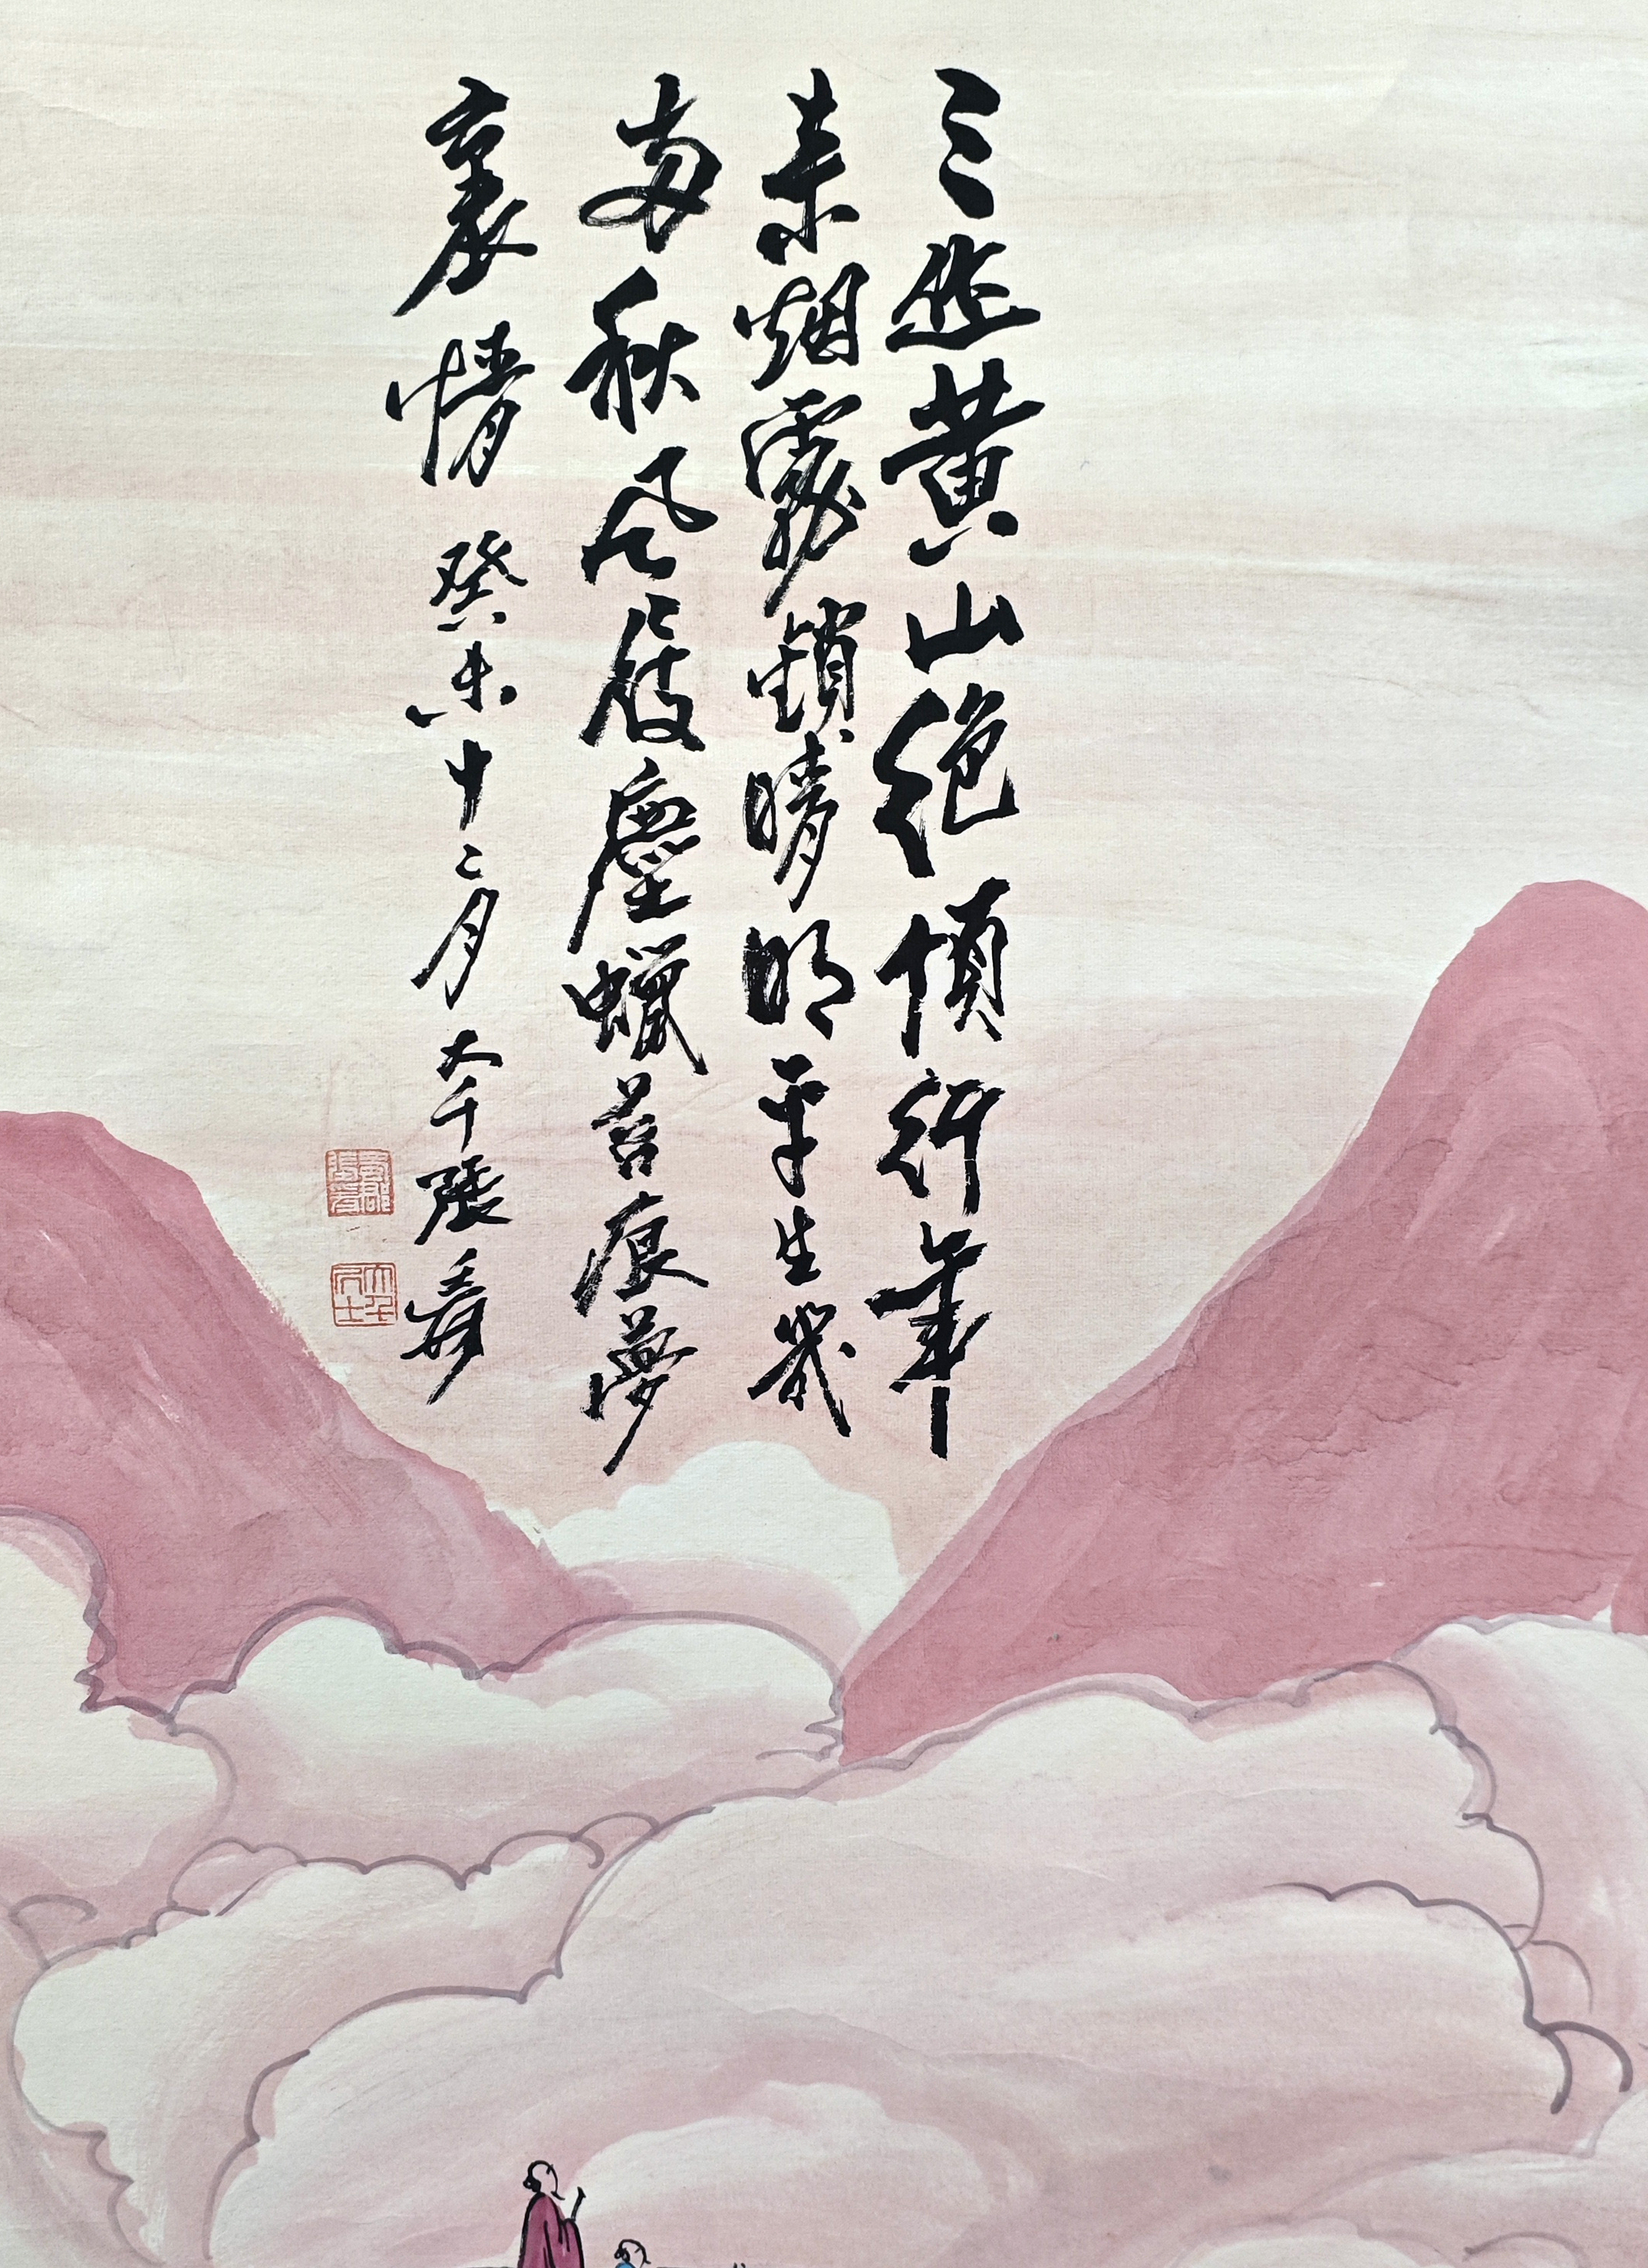 三作黃山絕頂行年
來烟霧鎖晴明平生幾
兩秋風屐塵蠟苔痕夢
裏情 癸未十二月 大千張爰
蜀郡張爰
大千居士